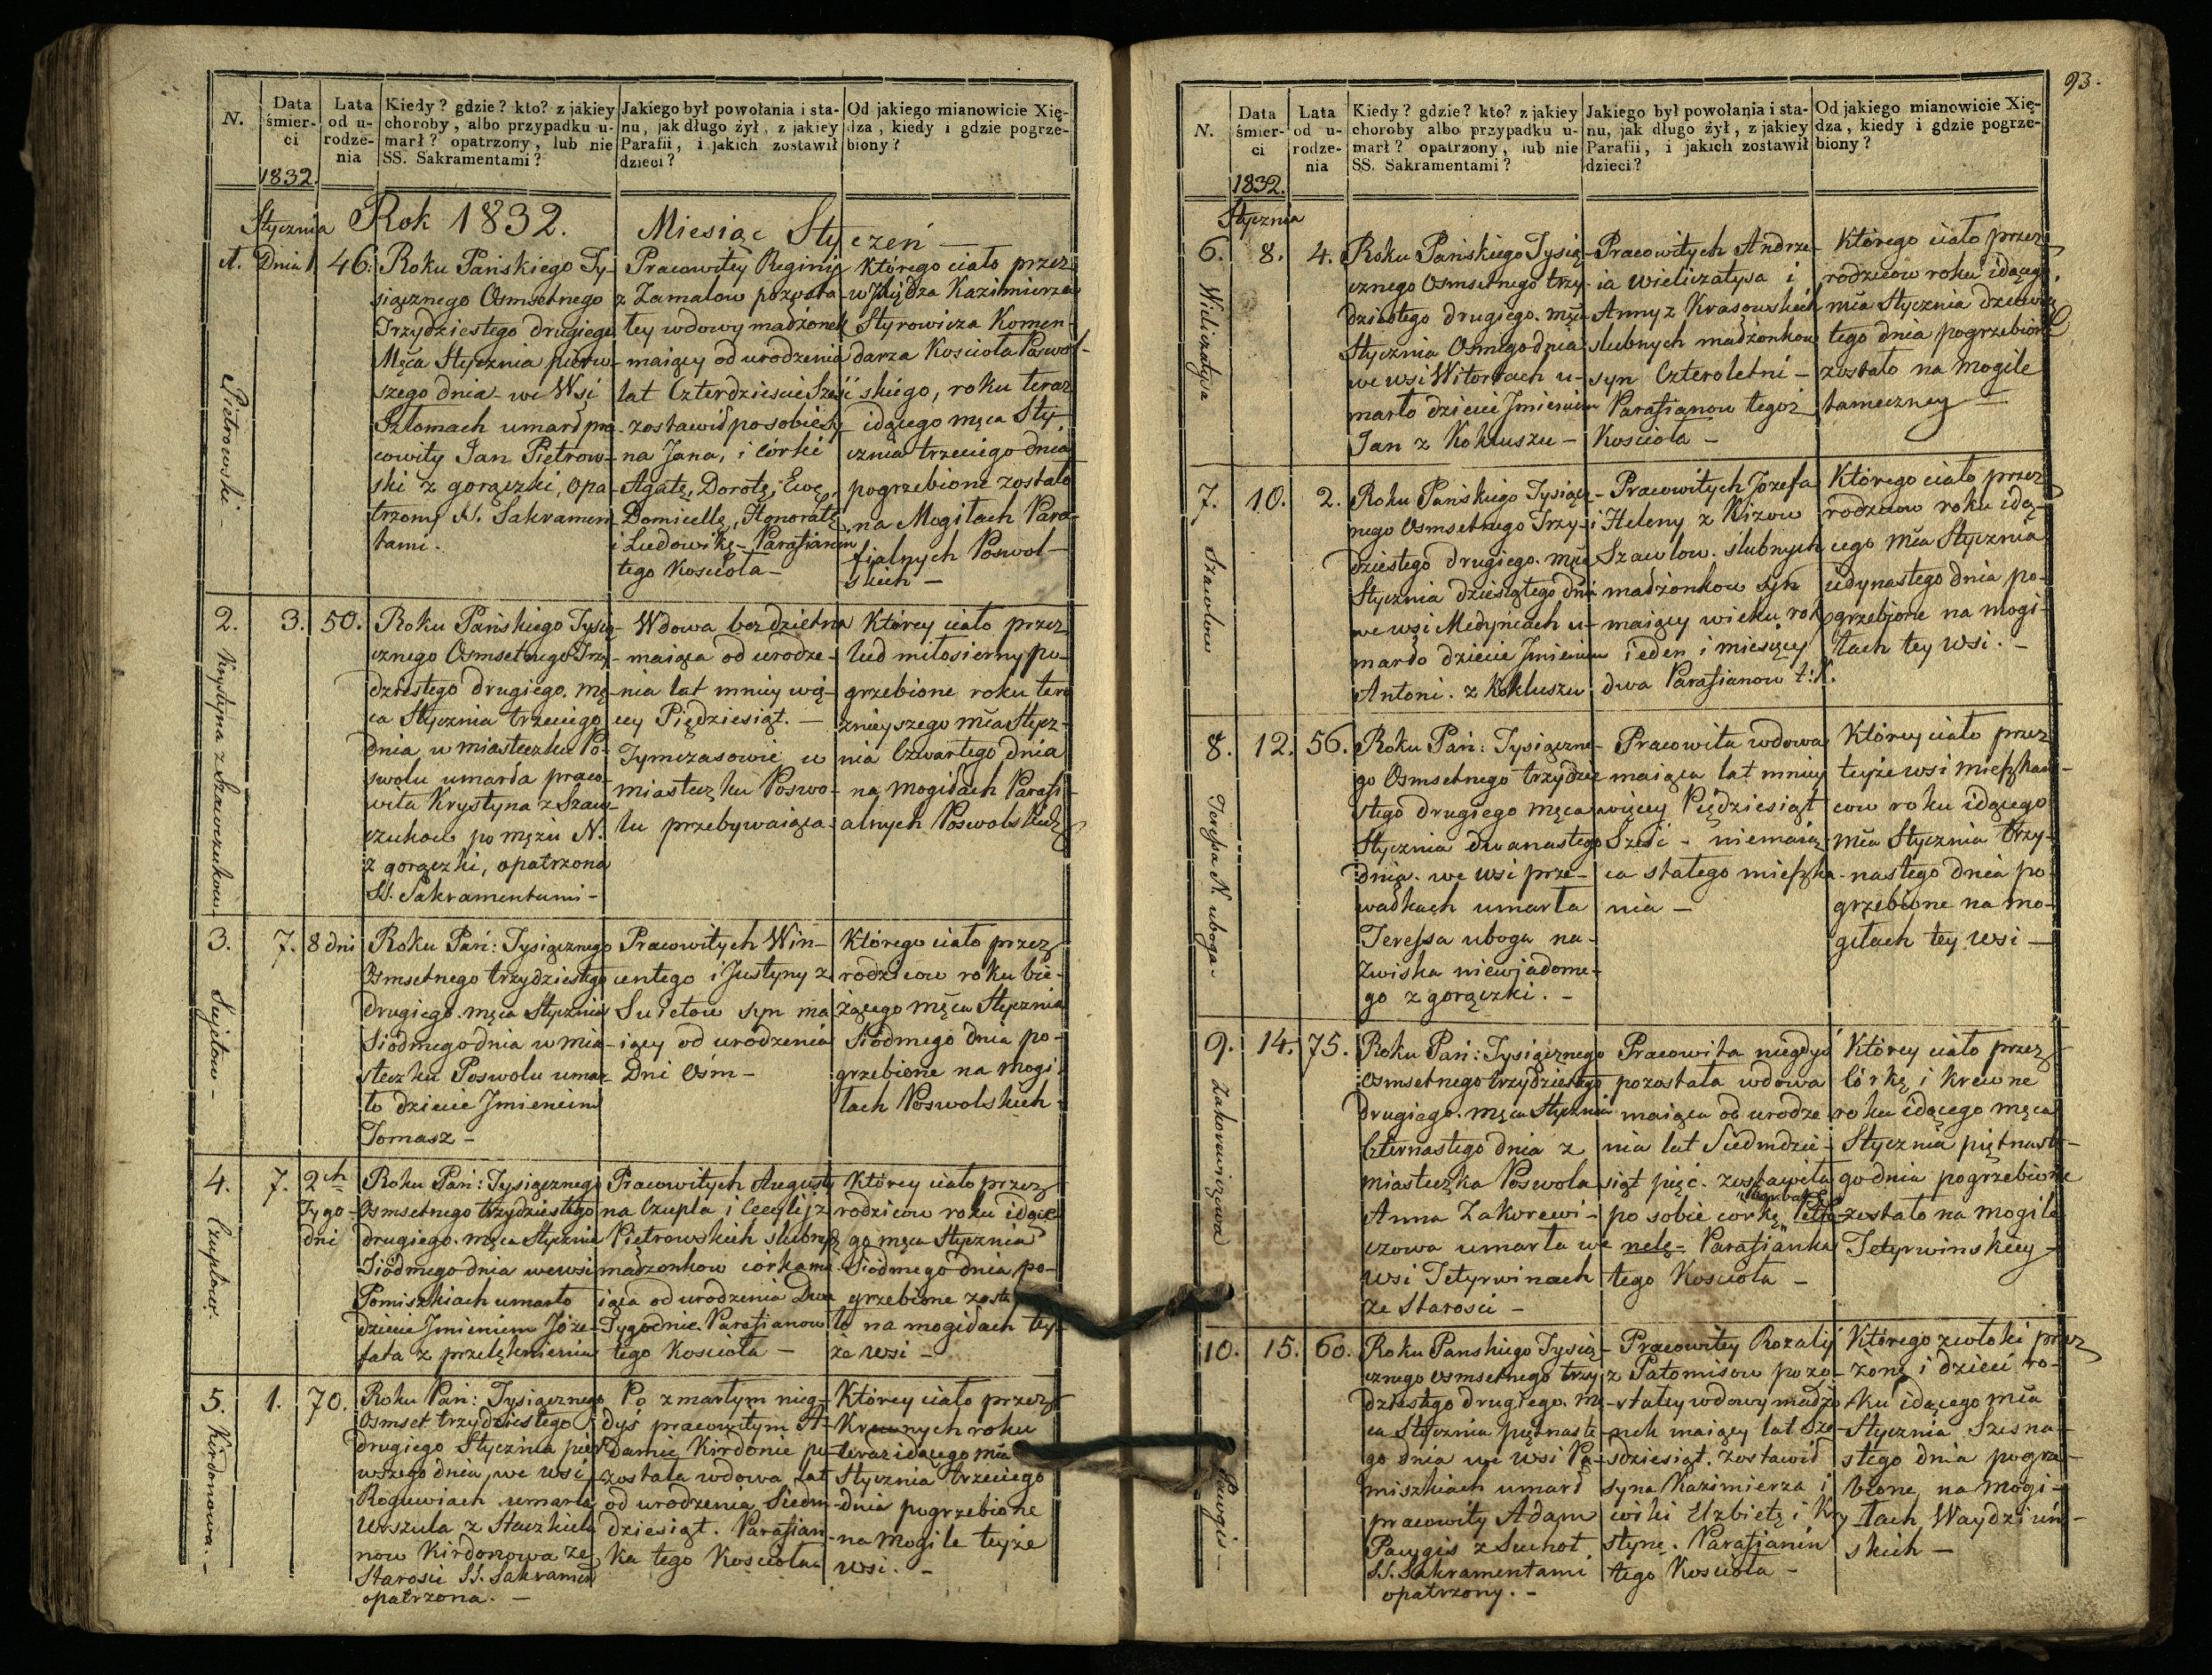 N.
Data śmier-ci
1832.
Lata od u-rodze-nia
Kiedy? gdzie? kto? z jakiey
choroby, albo przypadku u-
marł? opatrzony, lub nie
SS. Sakramentami?
Jakiego był powołania i sta-
nu, jak długo żył, z jakiey
Parafii, i jakich zostawił
dzieci?
Od jakiego mianowicie Xię-
dza, kiedy i gdzie pogrze-
biony?
Stycznia Rok 1832. Miesiąc Styczeń
1. Dnia 1 46.
Pietrowski -
Roku Pańskiego Ty-
siącznego Osmsetnego
Trzydziestego drugiego
Męca Stycznia pierw-
szego dnia we Wsi
umarł pra-
cowity Jan Pietrow-
ski z gorączki, opa-
trzony S. Sakramen-
tami.
Pracowitey Reginij
z Zamalow pozosta-
łey wdowy madżonek
maiący od urodzenia
lat Czterdzieście Sześć
zostawił po sobie Sy-
na Jana, i córki
Agatę, Dorotę, Ewę,
Domicellę, Honoratę
i Ludowikę - Parafianin
tego Kościoła -
Którego ciało przez
Xiędza Kazimierza
Styrowicza Komen-
darza Kościoła Poswol-
skiego, roku teraz
idącego męca Sty-
cznia trzeciego dnia
pogrzebione zostało
na Mogiłach Para-
fialnych Poswol-
skich -
2. 3. 50.
Krystyna z Szawczukow
Roku Pańskiego Tysią-
cznego Osmsetnego Trzy-
dziestego drugiego. mę-
ca Stycznia trzeciego
dnia w miasteczku Po-
swolu umarła praco-
wita Krystyna z Szaw-
czukow po mężu N.
z gorączki, opatrzona
SS. Sakramentami -
Wdowa bezdzietna
maiąca od urodze-
nia lat mniey wię-
cey Piędziesiąt. -
Tymczasowie w
miasteczku Poswo-
lu przebywaiąca
Którey ciało przez
lud miłosierny po-
grzebione roku tera
znieyszego mca Stycz-
nia Czwartego dnia
na mogiłach Parafi-
alnych Poswolskich
3. 7. 8 dni
Roku Pań: Tysiącznego
Osmsetnego trzydziestego
drugiego. męca Stycznia
Siódmego dnia w mia-
steczku Poswolu umar-
ło dziecie Jmieniem
Tomasz -
Pracowitych Win-
centego i Justyny z
syn ma
iący od urodzenia
Dni Ośm -
Którego ciało przez
rodziców roku bie-
żącego męca Stycznia
Siódmego dnia po-
grzebione na mogi-
łach Poswolskich
4. 7. 2ch Tygo-dni
Czuplow.
Roku Pań: Tysiącznego
Osmsetnego trzydziestego
drugiego. męca Stycznia
Siódmego dnia we wsi
Pomiszkiach umarło
dziecie Jmieniem Józe-
fata z przelęknienia
Pracowitych Augusty
na Czupla i Cecylij z
Pietrowskich slubnych
madzonkow córka ma
iąca od urodzenia Dwa
Tygodnie. Parafianow
tego Kościoła -
Którey ciało przez
rodziców roku idące
go męca Stycznia
Siódmego dnia po-
grzebione zosta
ło na mogiłach tey-
że wsi -
5. 1. 70.
Kirdonowa. -
Roku Pań: Tysiącznego
Osmset trzydziestego
drugiego Stycznia pier
wszego dnia, we wsi
Roguwiach umarła
Urszula z Staczkiela
now Kirdonowa ze
Starosci SS. Sakramen
opatrzona. -
Po zmarłym nieg-
dyś pracowitym A-
damie Kirdonie po
zostala wdowa, lat
od urodzenia Siedm
dziesiąt. Parafian-
ka tego Kościoła
Którey ciało przez
Krewnych roku
teraz idącego mca
Stycznia trzeciego
dnia pogrzebione
na mogile teyże
wsi. -
93.
N.
Data śmier-ci
1832.
Lata od u-rodze-nia
Kiedy? gdzie? kto? z jakiey
choroby albo przypadku u-
marł? opatrzony, lub nie
SS. Sakramentami?
Jakiego był powołania i sta-
nu, jak długo żył, z jakiey
Parafii, i jakich zostawił
dzieci?
Od jakiego mianowicie Xię-
dza, kiedy i gdzie pogrze-
biony?
Stycznia
6. 8. 4.
Wieliczatysa
Roku Pańskiego Tysią-
cznego Osmsetnego trzy-
dziestego drugiego. męca
Stycznia Osmego dnia
we wsi Witortach u-
marło dziecie Jmieniem
Jan z Kokluszu -
Pracowitych Andrze-
ia Wieliczatysa i
Anny z Krasowskich
slubnych madżonkow
syn Czteroletni -
Parafianow tegoż
Kościoła -
Którego ciało przez
rodziców roku idącego
mca Stycznia dziewią
tego dnia pogrzebione
zostało na mogile
tameczney -
7. 10. 2.
Szawlow
Roku Pańskiego Tysiącz-
nego Osmsetnego Trzy-
dziestego drugiego. męca
Stycznia dziesiątego dnia
we wsi Medyniach u-
marło dziecie Jmieniem
Antoni. z Kokluszu
Pracowitych Jozefa
i Heleny z Kizow
Szawlow. slubnych
madżonkow syn
maiący wieku rok
ieden i miesięcy
dwa Parafianow t: K.
Którego ciało przez
rodziców roku idą-
cego mca Stycznia
iedynastego dnia po-
grzebione na mogi-
łach tey wsi. -
8. 12. 56.
Teressa N. uboga
Roku Pań: Tysiączne-
go Osmsetnego trzydzie
stego drugiego męca
Stycznia dwanastego
dnia. we wsi prze-
wadkach umarła
Teressa uboga na-
zwiska niewjadome-
go z gorączki. -
Pracowita wdowa
maiąca lat mniey
więcey Pięćdziesiąt
Sześć - niemaią-
ca stałego mieszka-
nia -
Którey ciało przez
teyże wsi mieszkań-
cow roku idącego
mca Stycznia trzy-
nastego dnia po
grzebione na mo-
giłach tey wsi -
9. 14. 75.
Zakorewiczowa
Roku Pań: Tysiącznego
Osmsetnego trzydziestego
drugiego. męca Stycznia
Czternastego dnia z
miasteczka Poswola
Anna Zakorewi-
czowa umarła we
wsi Tetyrwinach
ze Starosci -
Pracowita niegdyś
pozostała wdowa
maiąca od urodze
nia lat Siedmdzie-
siąt pięć. zostawiła
po sobie corkę
nelę - Parafianka
tego Kościoła -
Którey ciało przez
Córkę i krewne
roku idącego męca
Stycznia piętnaste-
go dnia pogrzebione
zostało na mogile
Tetyrwinskiey -
10. 15. 60.
Pawgis -
Roku Panskiego Tysią-
cznego Osmsetnego trzy
dziestego drugiego. mę-
ca Stycznia piętnaste
go dnia we wsi Pa-
miszkiach umarł
pracowity Adam
Pawgis z Suchot
SS. Sakramentami
opatrzony. -
Pracowitey Rozalij
z Patomisow pozo-
stałey wdowy madżo
nek maiący lat Sze-
śdziesiąt. zostawił
syna Kazimierza i
córki Elzbietę i Kry
stynę. Parafianin
tego Kościoła -
Którego zwłoki przez
żonę i dzieci ro-
ku idącego mca
Stycznia Szesna-
stego dnia pogrze-
bione, na mogi-
łach Waydziuń-
skich -